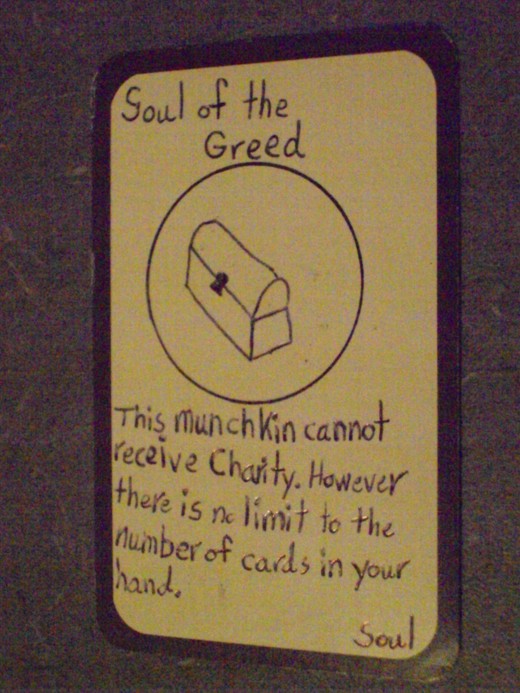 Soul of the
Greed
This munchkin cannot
receive Charity. However
there is no limit to the
number of cards in your
hand.
Soul